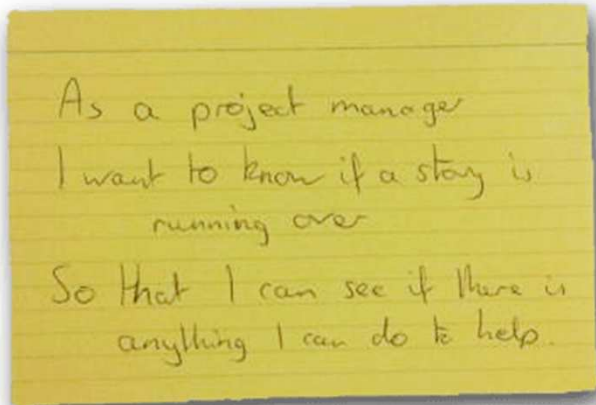 As a project manager
I want to know if a story is
running over
So that I can see if there is
anything I can do to help.